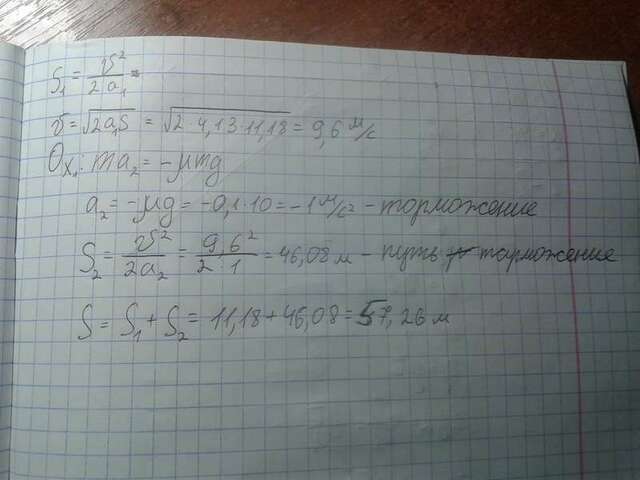 S₁ = υ²/2a₁ =
υ = √2a₁S = √2·4,13·11,18 = 9,6 м/с
Oх: ma₂ = -μmg
a₂ = -μg = -0,1·10 = -1 м/с² - торможение
S₂ = υ²/2a₂ = 9,6²/2·1 = 46,08 м - путь торможение
S = S₁ + S₂ = 11,18 + 46,08 = 57,26 м